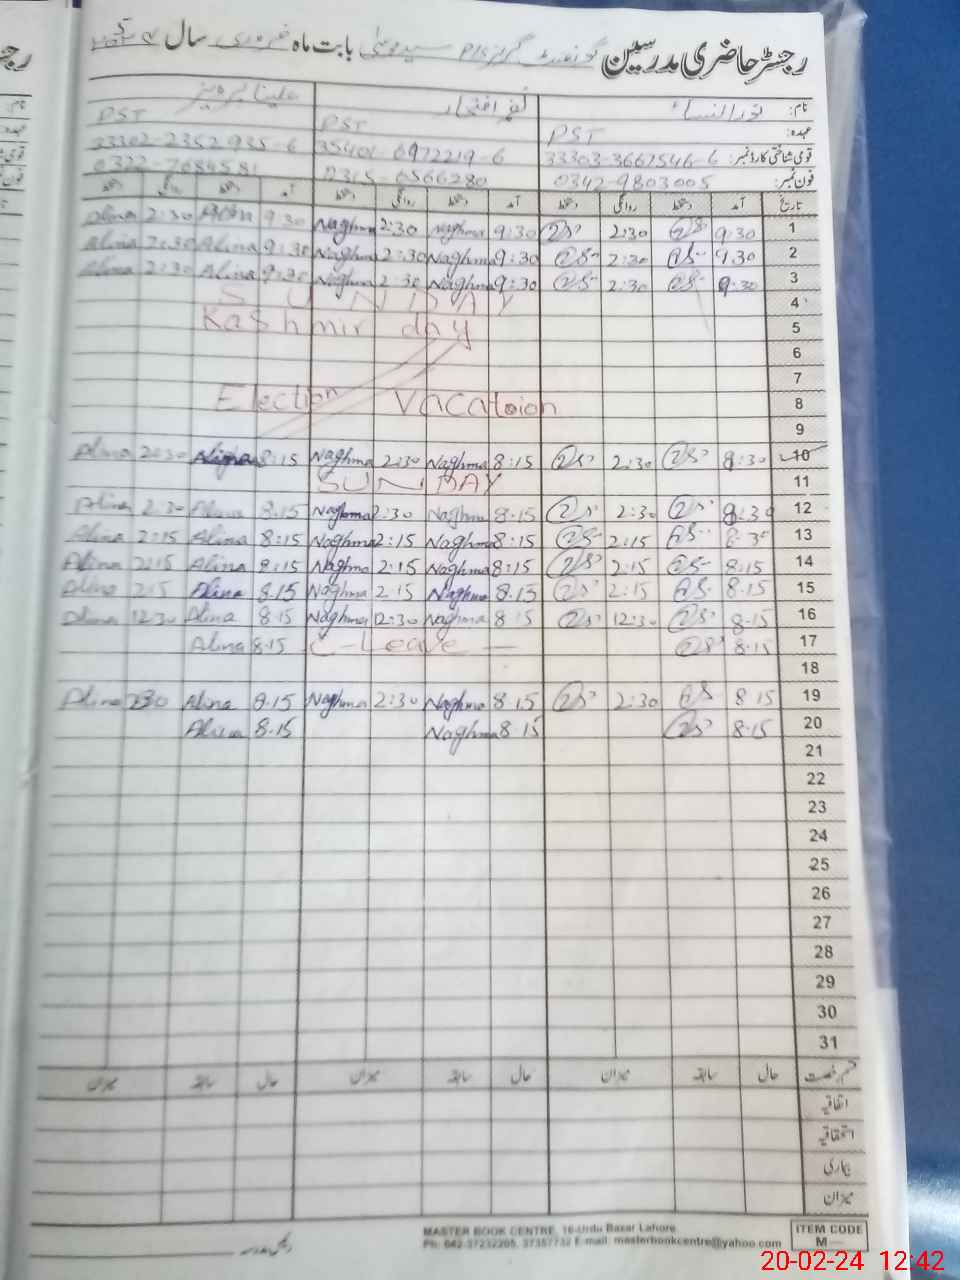 رجسٹر حاضری مدرسین گورنمنٹ گرلز P/S سید موسیٰ بابت ماہ فروری سال
نام: نور النساء نغمہ افتخار علینا پرویز
عہدہ: PST PST PST
قومی شناختی کارڈ نمبر: 33303-3667546-6 35401-0972219-6 33302-2352935-6
فون نمبر: 0342-9803005 0315-0566280 0322-7684581
تاریخ آمد دستخط روانگی دستخط آمد دستخط روانگی دستخط آمد دستخط روانگی دستخط
Alina 2:30 Alina 9:30 Naghma 2:30 Naghma 9:30 2:30 9:30 1
Alina 2:30 Alina 9:30 Naghma 2:30 Naghma 9:30 2:30 9:30 2
Alina 2:30 Alina 9:30 Naghma 2:30 Naghma 9:30 2:30 9:30 3
SUNDAY 4
Kashmir day 5
6
7
Election Vacatoion 8
9
Alina 2:30 Alina 8:15 Naghma 2:30 Naghma 8:15 2:30 8:30 10
SUNDAY 11
Alina 2:30 Alina 8.15 Naghma 2:30 Naghma 8.15 2:30 8:30 12
Alina 2:15 Alina 8:15 Naghma 2:15 Naghma 8:15 2:15 8:30 13
Alina 2:15 Alina 8:15 Naghma 2:15 Naghma 8:15 2:15 8:15 14
Alina 2:15 Alina 8.15 Naghma 2:15 Naghma 8.15 2:15 8.15 15
Alina 12:30 Alina 8.15 Naghma 12:30 Naghma 8.15 12:30 8.15 16
Alina 8.15 C-Leave — 8.15 17
18
Alina 2:30 Alina 8.15 Naghma 2:30 Naghma 8.15 2:30 8.15 19
Alina 8.15 Naghma 8.15 8.15 20
21
22
23
24
25
26
27
28
29
30
31
قسم رخصت حال سابقہ میزان حال سابقہ میزان حال سابقہ میزان
اتفاقیہ
استحقاقیہ
بیماری
میزان
رئیس مدرسہ
MASTER BOOK CENTRE, 16-Urdu Bazar Lahore.
Ph: 042-37232205, 37357732 E-mail: masterbookcentre@yahoo.com
ITEM CODE
M—
20-02-24 12:42